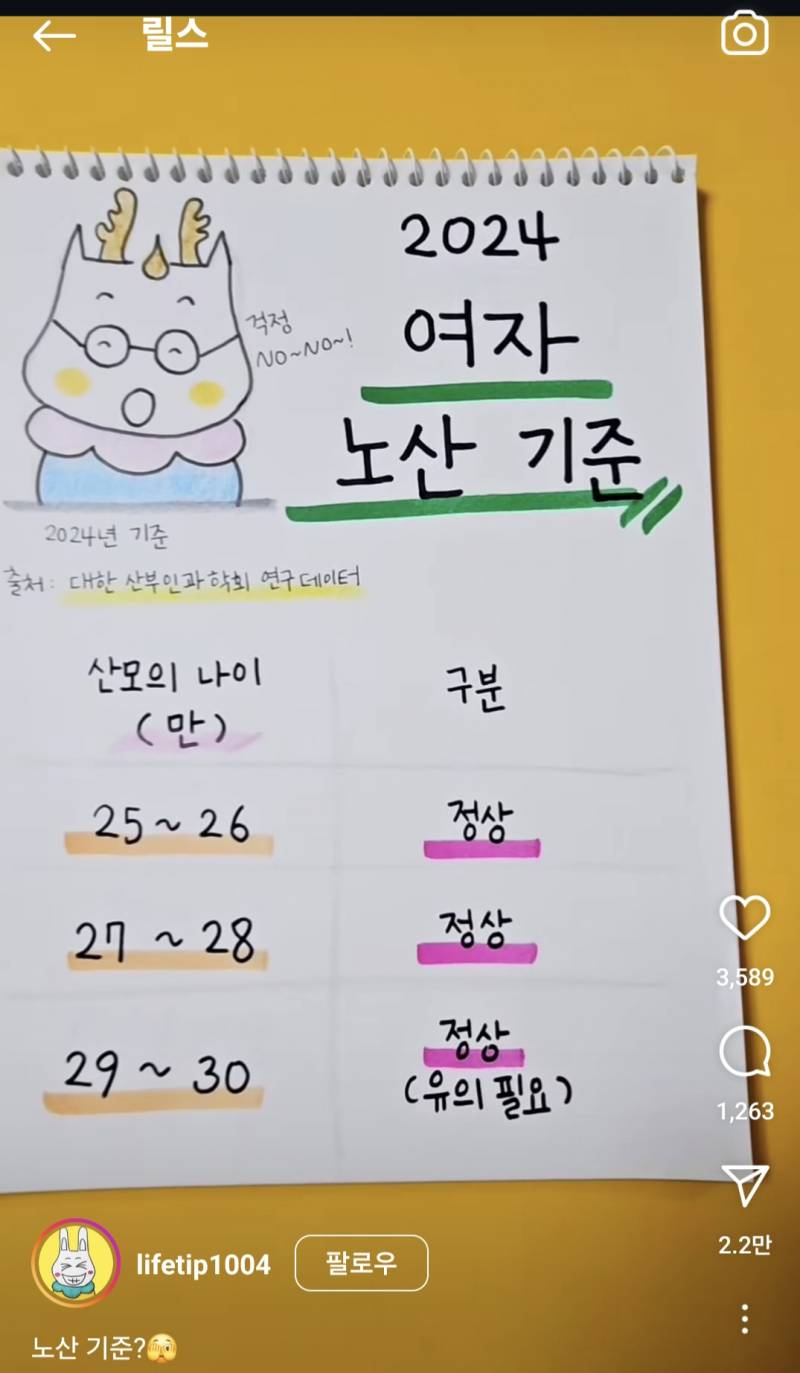 릴스
2024
여자
노산 기준
걱정
NO~NO~!
2024년 기준
출처: 대한 산부인과 학회 연구 데이터
산모의 나이 구분
(만)
25~26 정상
27~28 정상
29~30 정상
(유의 필요)
3,589
1,263
2.2만
lifetip1004 팔로우
노산 기준?🫣